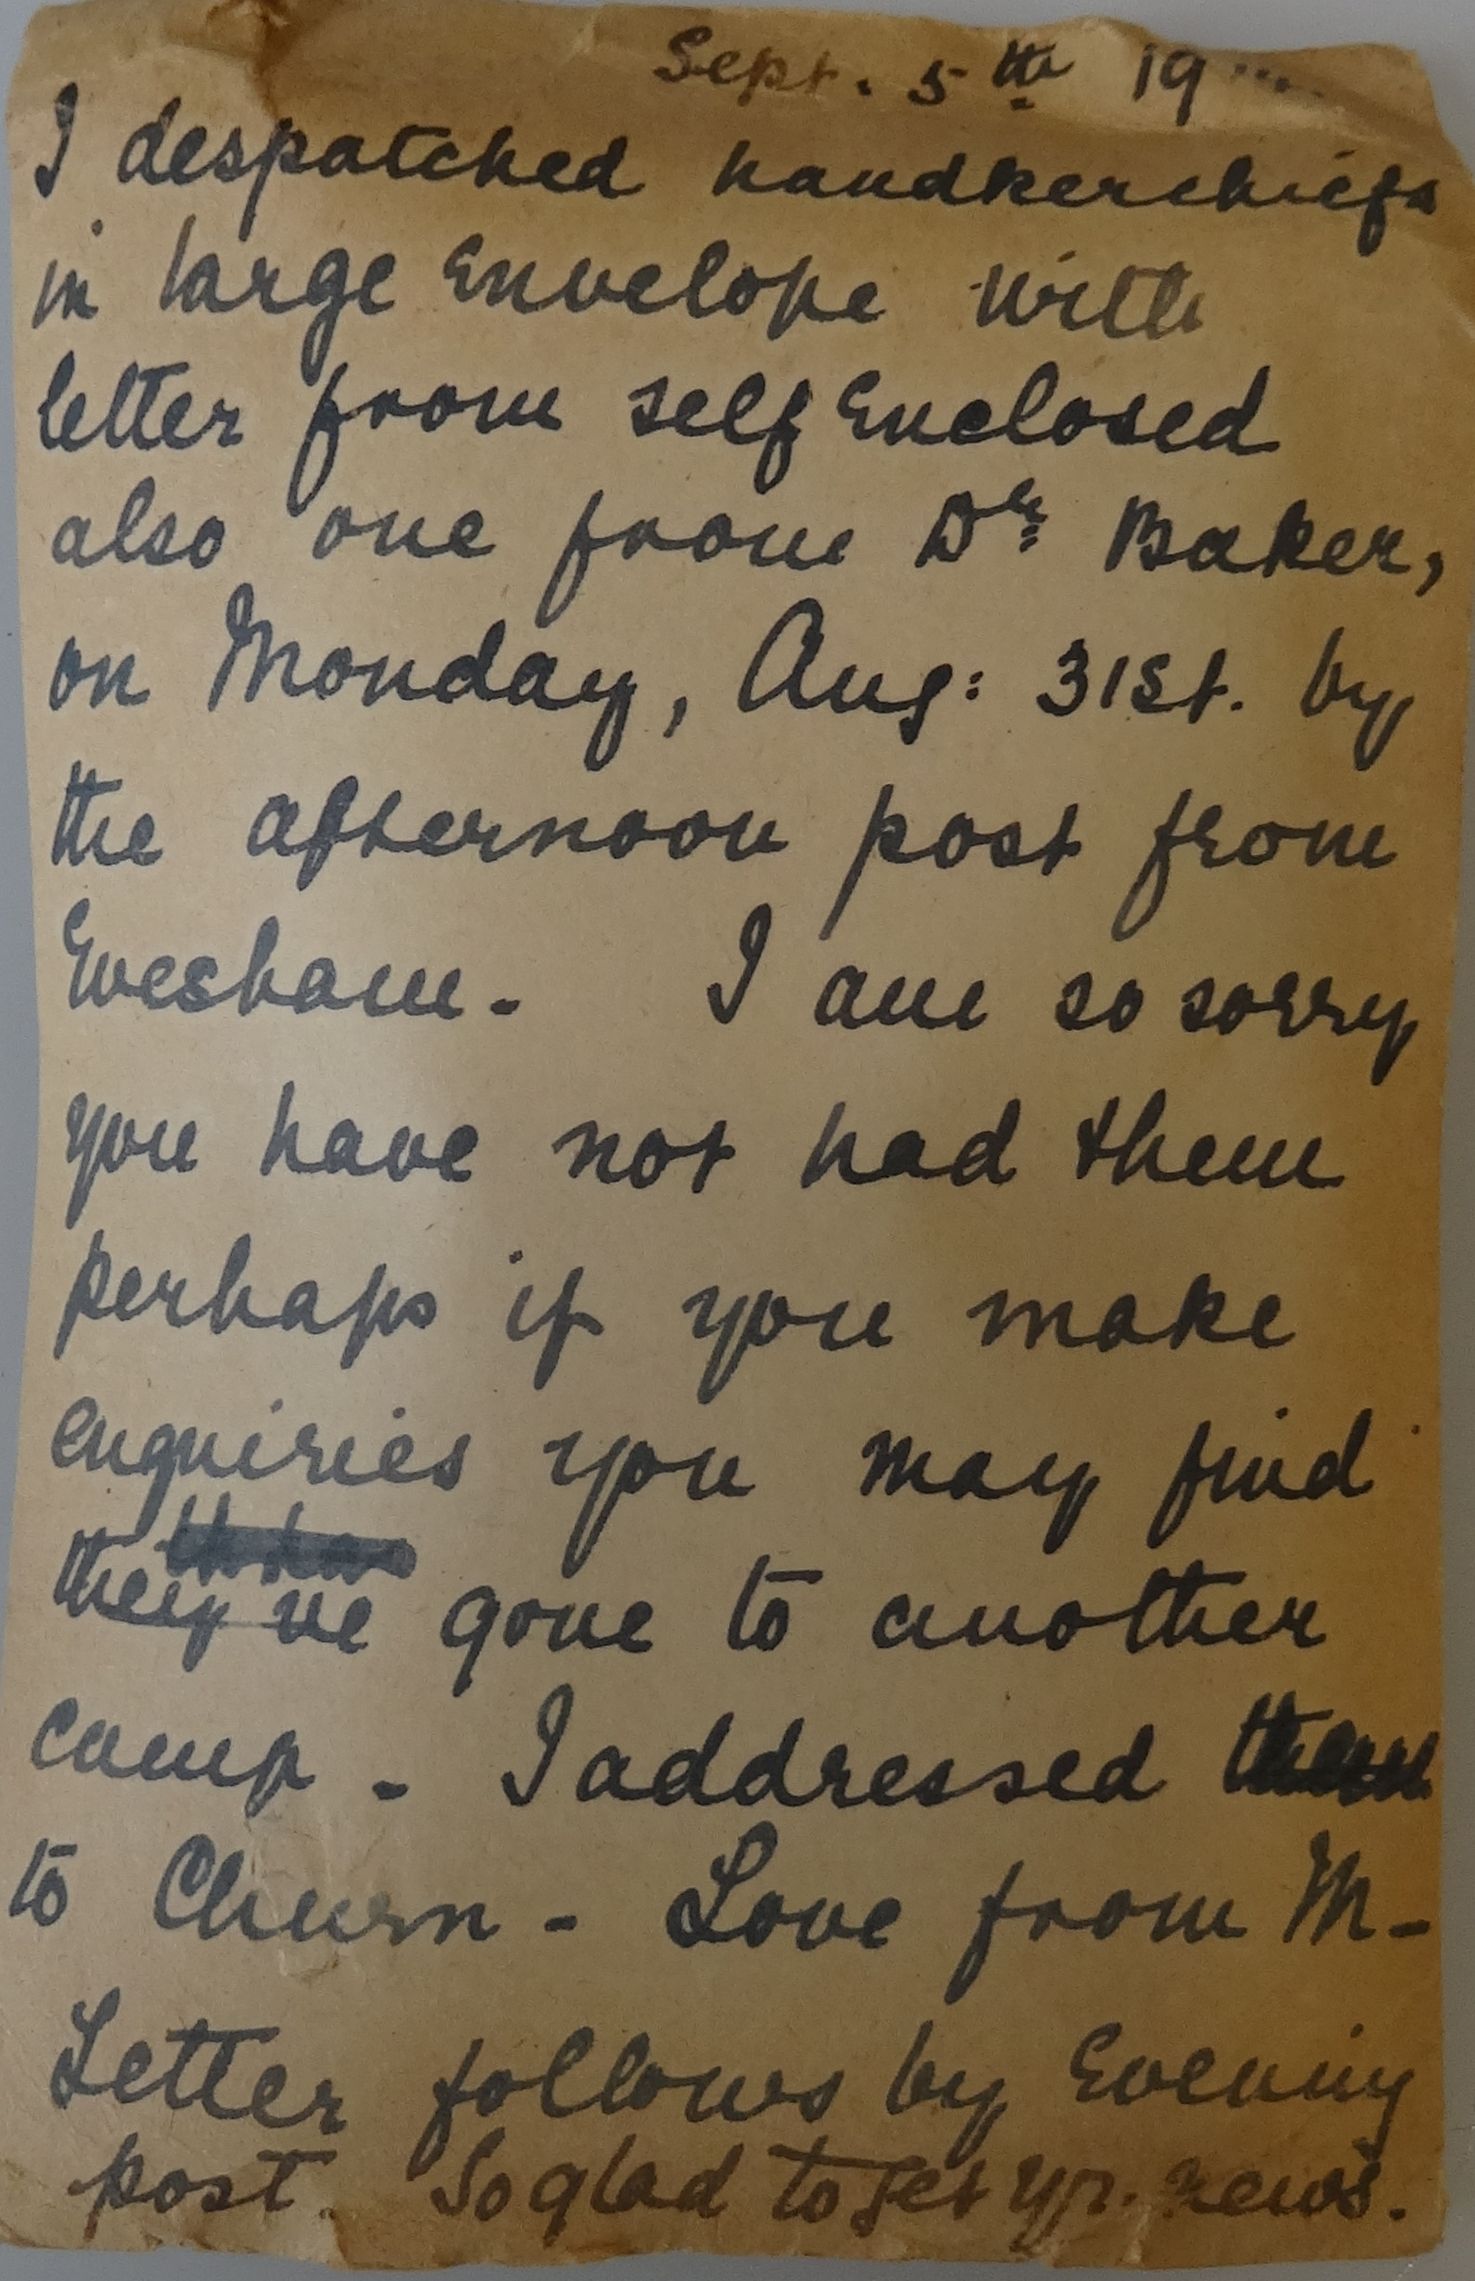 Sept. 5th 19
I despatched handkerchiefs
in large Envelope with
letter from self Enclosed
also one from Dr Baker,
on Monday, Aug: 31st. by
the afternoon post from
Evesham - I am so sorry
you have not had them
perhaps if you make
enquiries you may find
they've gone to another
camp - I addressed them
to Churn - Love from M -
Letter follows by Evening
post. So glad to get yr. news.